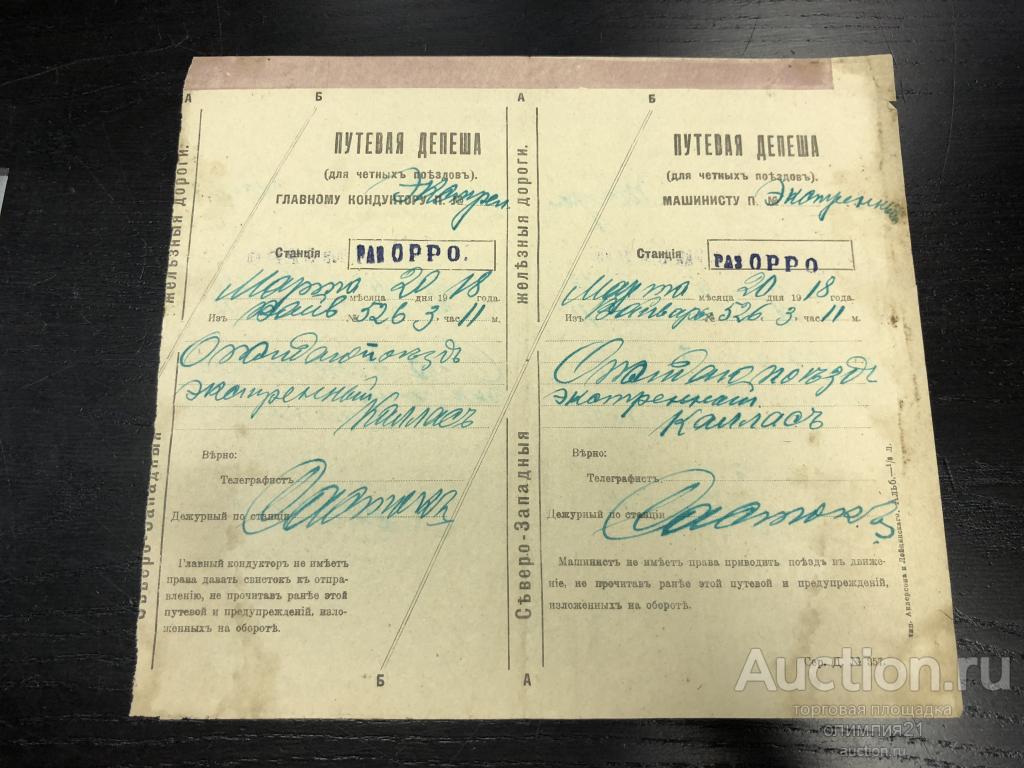 А Б А Б
Сѣверо-Западный желѣзныя дороги.
ПУТЕВАЯ ДЕПЕША
(для четныхъ поѣздовъ).
ГЛАВНОМУ КОНДУКТОРУ П. №
Станція РАЗ ОРРО.
Марта мѣсяца 20 дня 1918 года.
Изъ № 526 3 час. 11 м.
Ожидаю поѣздъ
экстренный
Калласъ
Вѣрно:
Телеграфистъ
Дежурный по станціи
Главный кондукторъ не имѣетъ
права давать свистокъ къ отпра-
вленію, не прочитавъ ранѣе этой
путевой и предупрежденій, изло-
женныхъ на оборотѣ.
Б
Сѣверо-Западныя желѣзныя дороги.
ПУТЕВАЯ ДЕПЕША
(для четныхъ поѣздовъ).
МАШИНИСТУ П. № Экстренный
Станція РАЗ ОРРО
Марта мѣсяца 20 дня 1918 года.
Изъ № 526 3 час. 11 м.
Ожидаю поѣздъ
экстренный
Калласъ
Вѣрно:
Телеграфистъ
Дежурный по станціи
Машинистъ не имѣетъ права приводить поѣздъ въ движе-
ніе, не прочитавъ ранѣе этой путевой и предупрежденій,
изложенныхъ на оборотѣ.
А
Сер. Д. № 357.
Auction.ru
торговая площадка
олимпия21
auction.ru